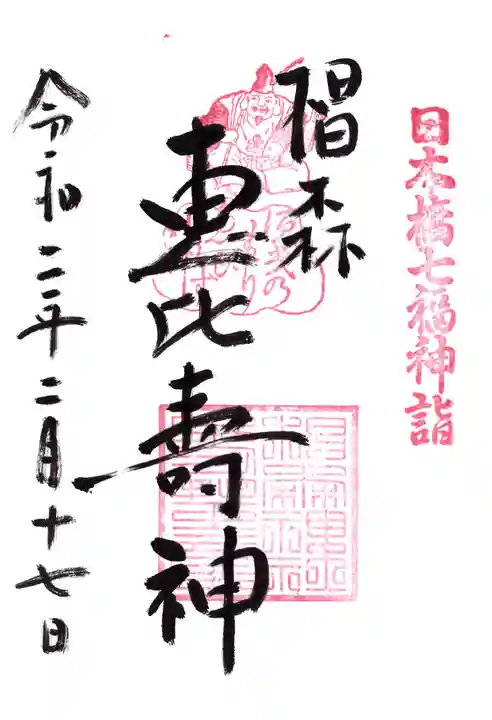 日本橋七福神詣
椙森
恵比寿神
令和二年二月十七日